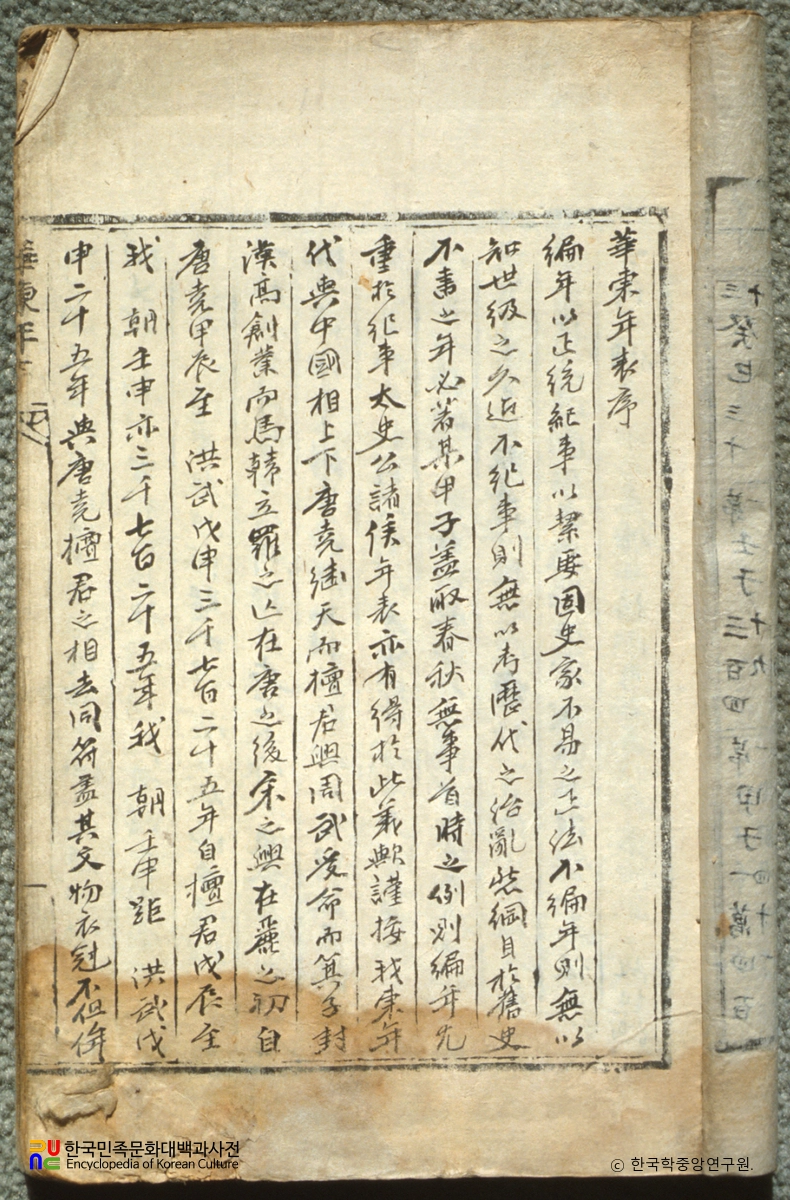 華東年表序
編年以正統紀事以絜要固史家不易之正法不編年則無以
知世級之久近不紀事則無以考歷代之治亂紫綱目於舊史
不書之年必著某甲子蓋取春秋無事首時之例則編年尤
重於紀事太史公諸侯年表亦有得於此義歟謹按我東年
代與中國相上下唐堯繼天而檀君興周武受命而箕子封
漢高創業而馬韓立羅之亡在唐之後宋之興在麗之初自
唐堯甲辰至 洪武戊申三千七百二十五年自檀君戊辰至
我 朝壬申亦三千七百二十五年我 朝壬申距 洪武戊
申二十五年與唐堯檀君之相去同符盖其文物衣冠不但侔
華東年
序
一
한국민족문화대백과사전
Encyclopedia of Korean Culture
ⓒ 한국학중앙연구원.